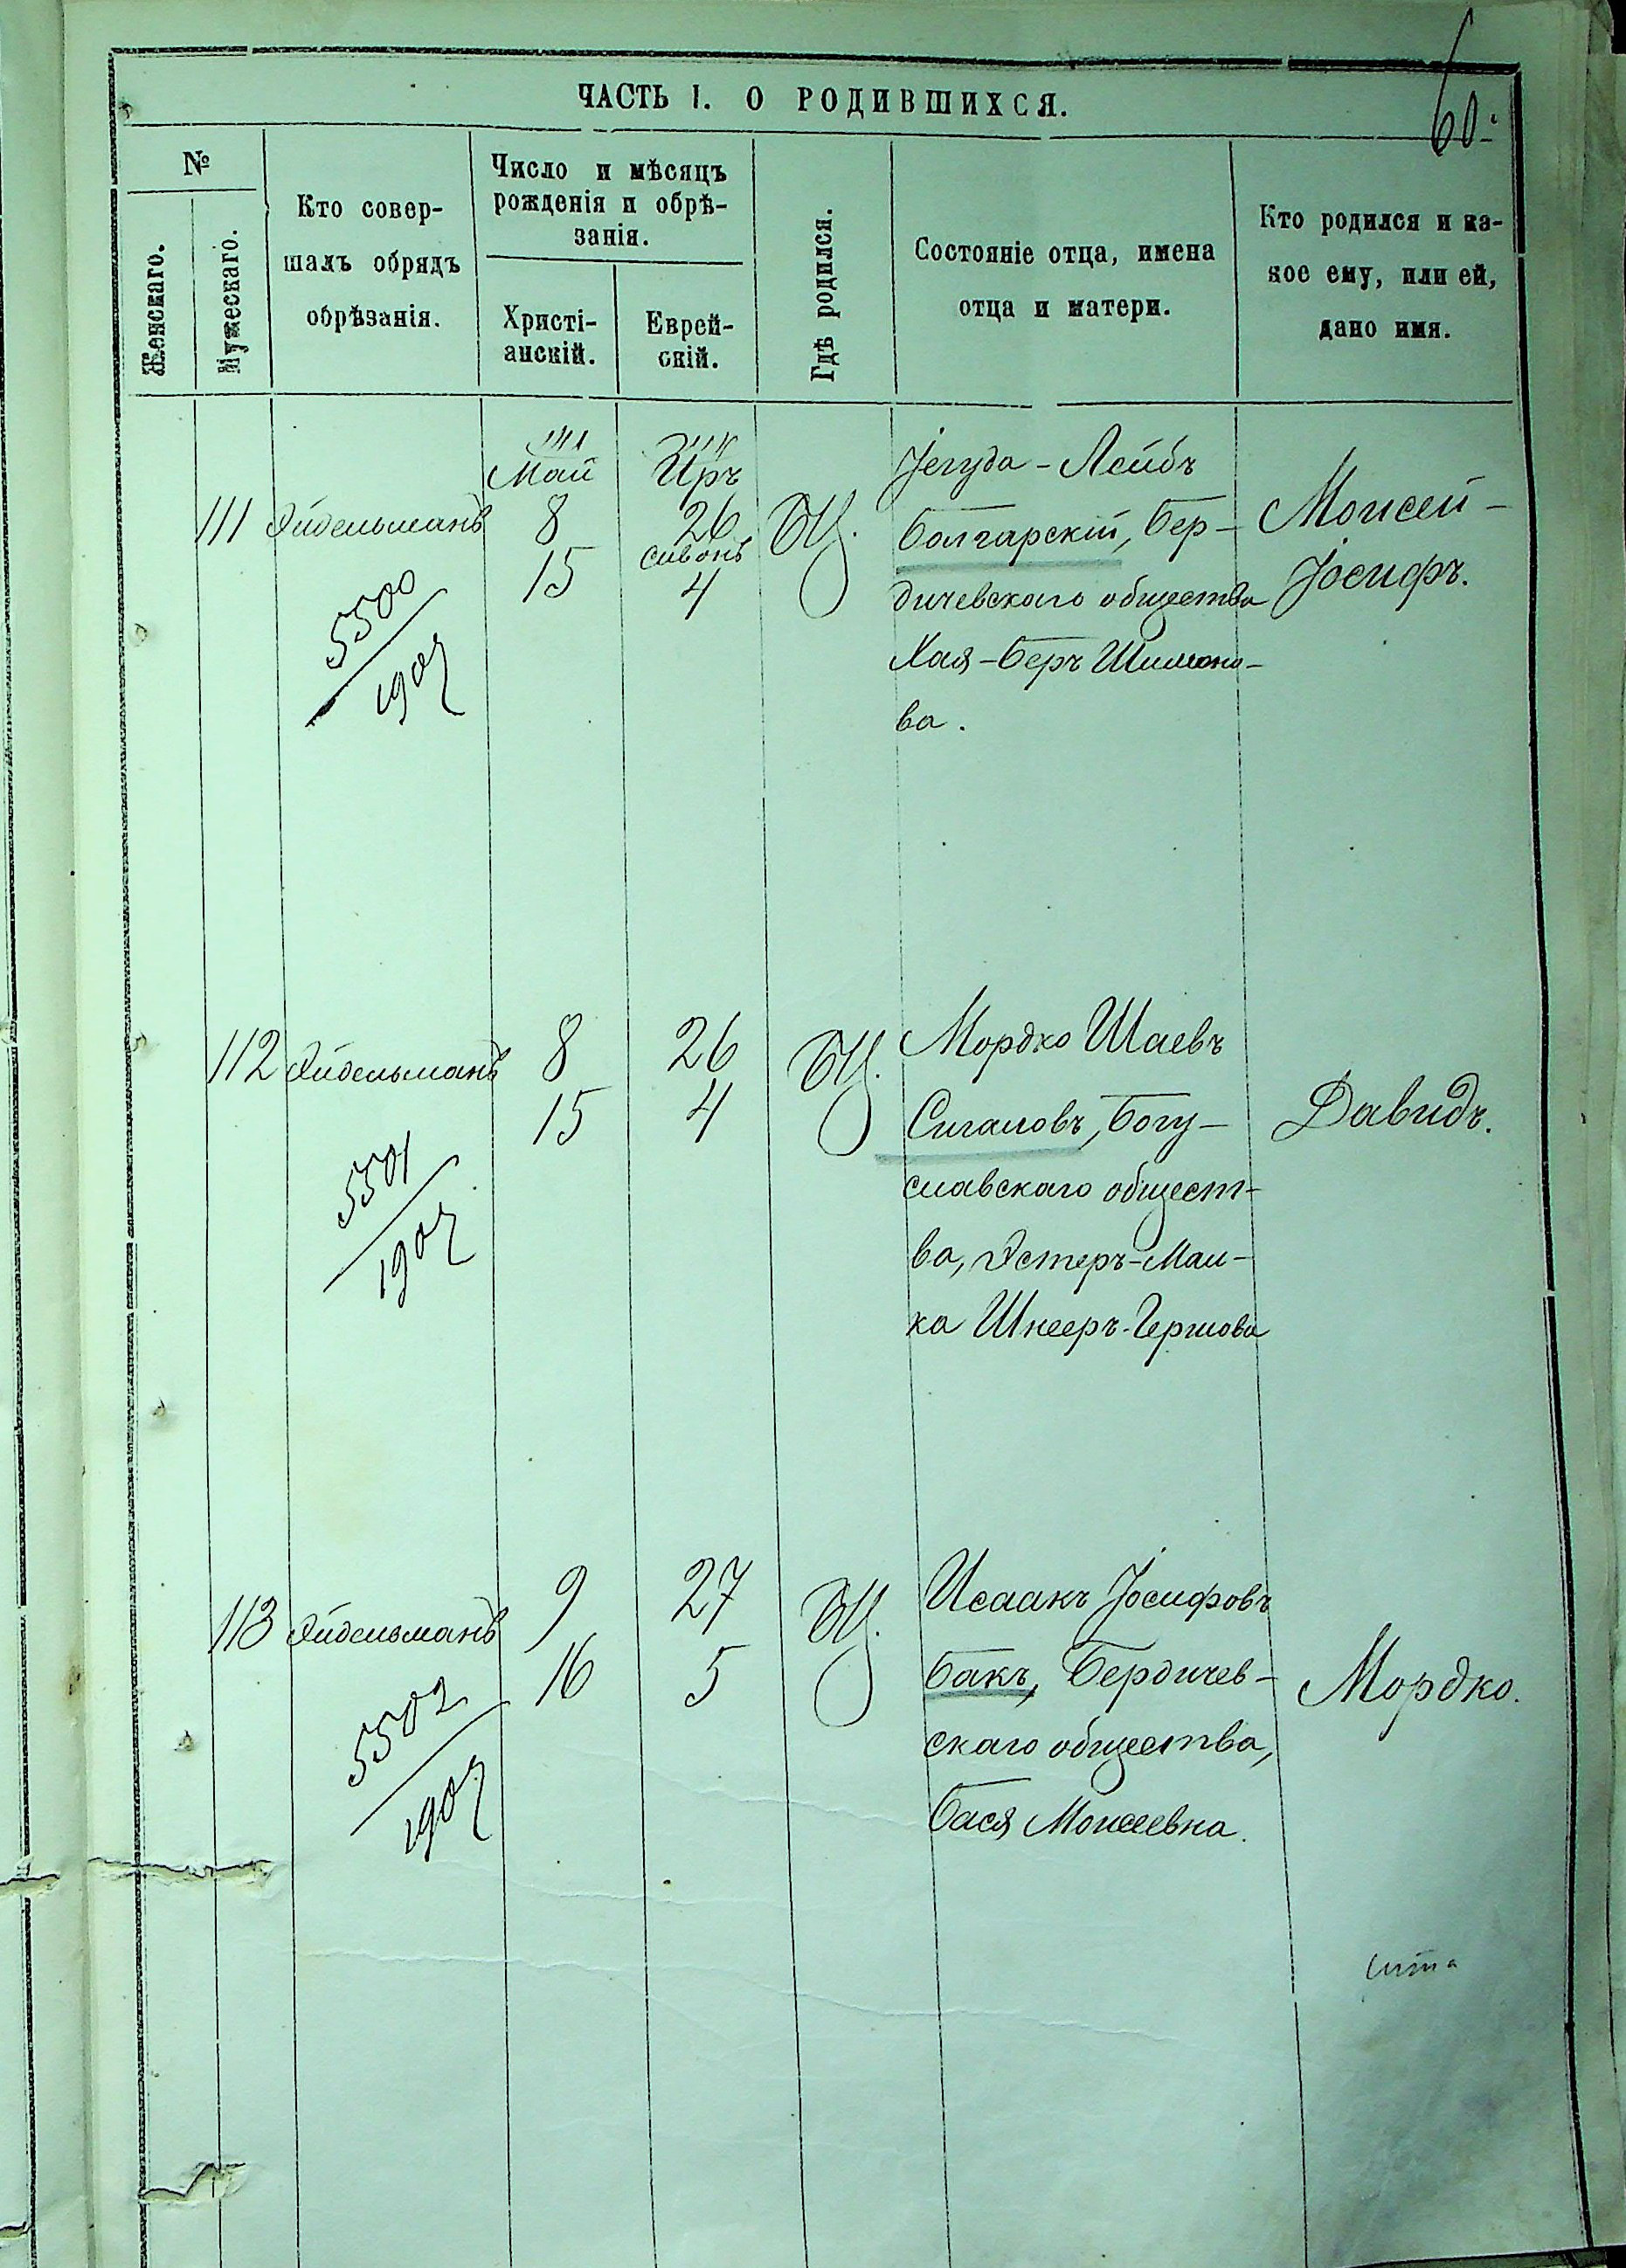 60.
ЧАСТЬ I. О РОДИВШИХСЯ.
№
Женскаго.
Мужескаго.
Кто совер-
шалъ обрядъ
обрѣзанія.
Число и мѣсяцъ
рожденія и обрѣ-
занія.
Христі-
анскій.
Еврей-
скій.
Гдѣ родился.
Состояніе отца, имена
отца и матери.
Кто родился и ка-
кое ему, или ей,
дано имя.
111
Эйдельманъ
5500
1907
Май
8
15
Иръ
26
Сивонъ
4
БЦ.
Јегуда-Лейбъ
Болгарскій, Бер-
дичевскаго общества
Хая-Беръ Шимоно-
ва.
Моисей-
Јосифъ.
112
Эйдельманъ
5501
1907
8
15
26
4
БЦ.
Мордко Шаевъ
Сигаловъ, Богу-
славскаго общест-
ва, Эстеръ-Мал-
ка Шнееръ-Гершова
Давидъ.
113
Эйдельманъ
5502
1907
9
16
27
5
БЦ.
Исаакъ Јосифовъ
Бакъ, Бердичев-
скаго общества,
Бася Моисеевна.
Мордко.